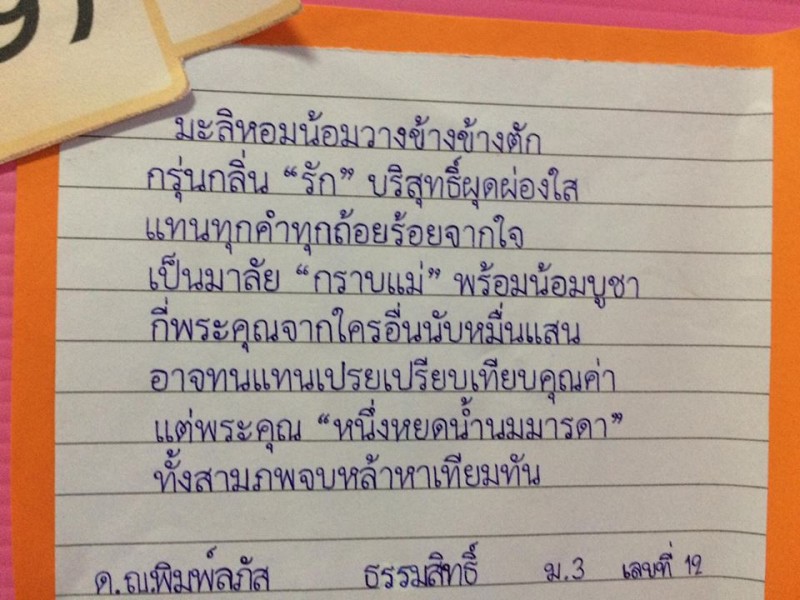 97
มะลิหอมน้อมวางข้างข้างตัก
กรุ่นกลิ่น “รัก” บริสุทธิ์ผุดผ่องใส
แทนทุกคำทุกถ้อยร้อยจากใจ
เป็นมาลัย “กราบแม่” พร้อมน้อมบูชา
กี่พระคุณจากใครอื่นนับหมื่นแสน
อาจทนแทนเปรยเปรียบเทียบคุณค่า
แต่พระคุณ “หนึ่งหยดน้ำนมมารดา”
ทั้งสามภพจบหล้าหาเทียมทัน
ด.ญ.พิมพ์ลภัส ธรรมสิทธิ์ ม.3 เลขที่ 12